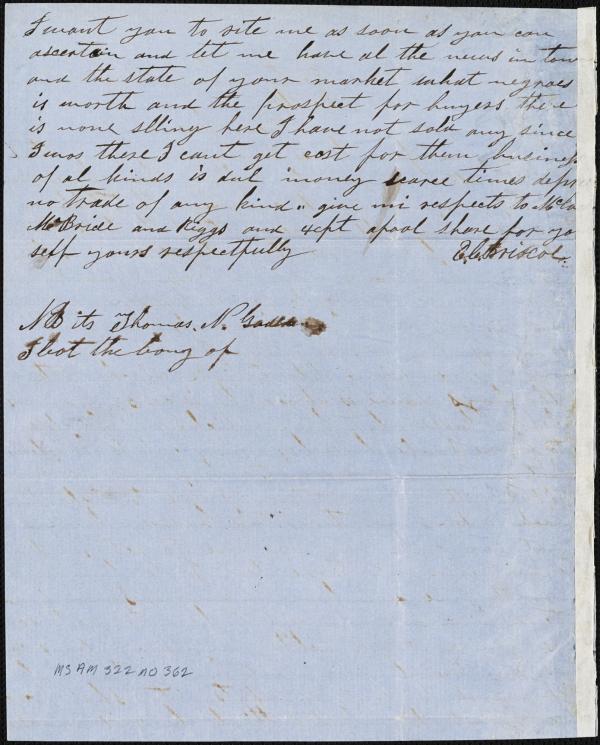 I want you to rite me as soon as you can
ascertain and let me have al the news in town
and the state of your market what negroes
is worth and the prospect for buyers there
is none slling here I have not sold any since
I was there I cant get cost for them business
of al kinds is dul money scarce times
no trade of any kind give mi respects to
McBride and Riggs and xept apool share for yo
self yours respectfully E C Briscoe
NB its Thomas N. Gadden
I bot the boy of
MS AM 322 NO 362